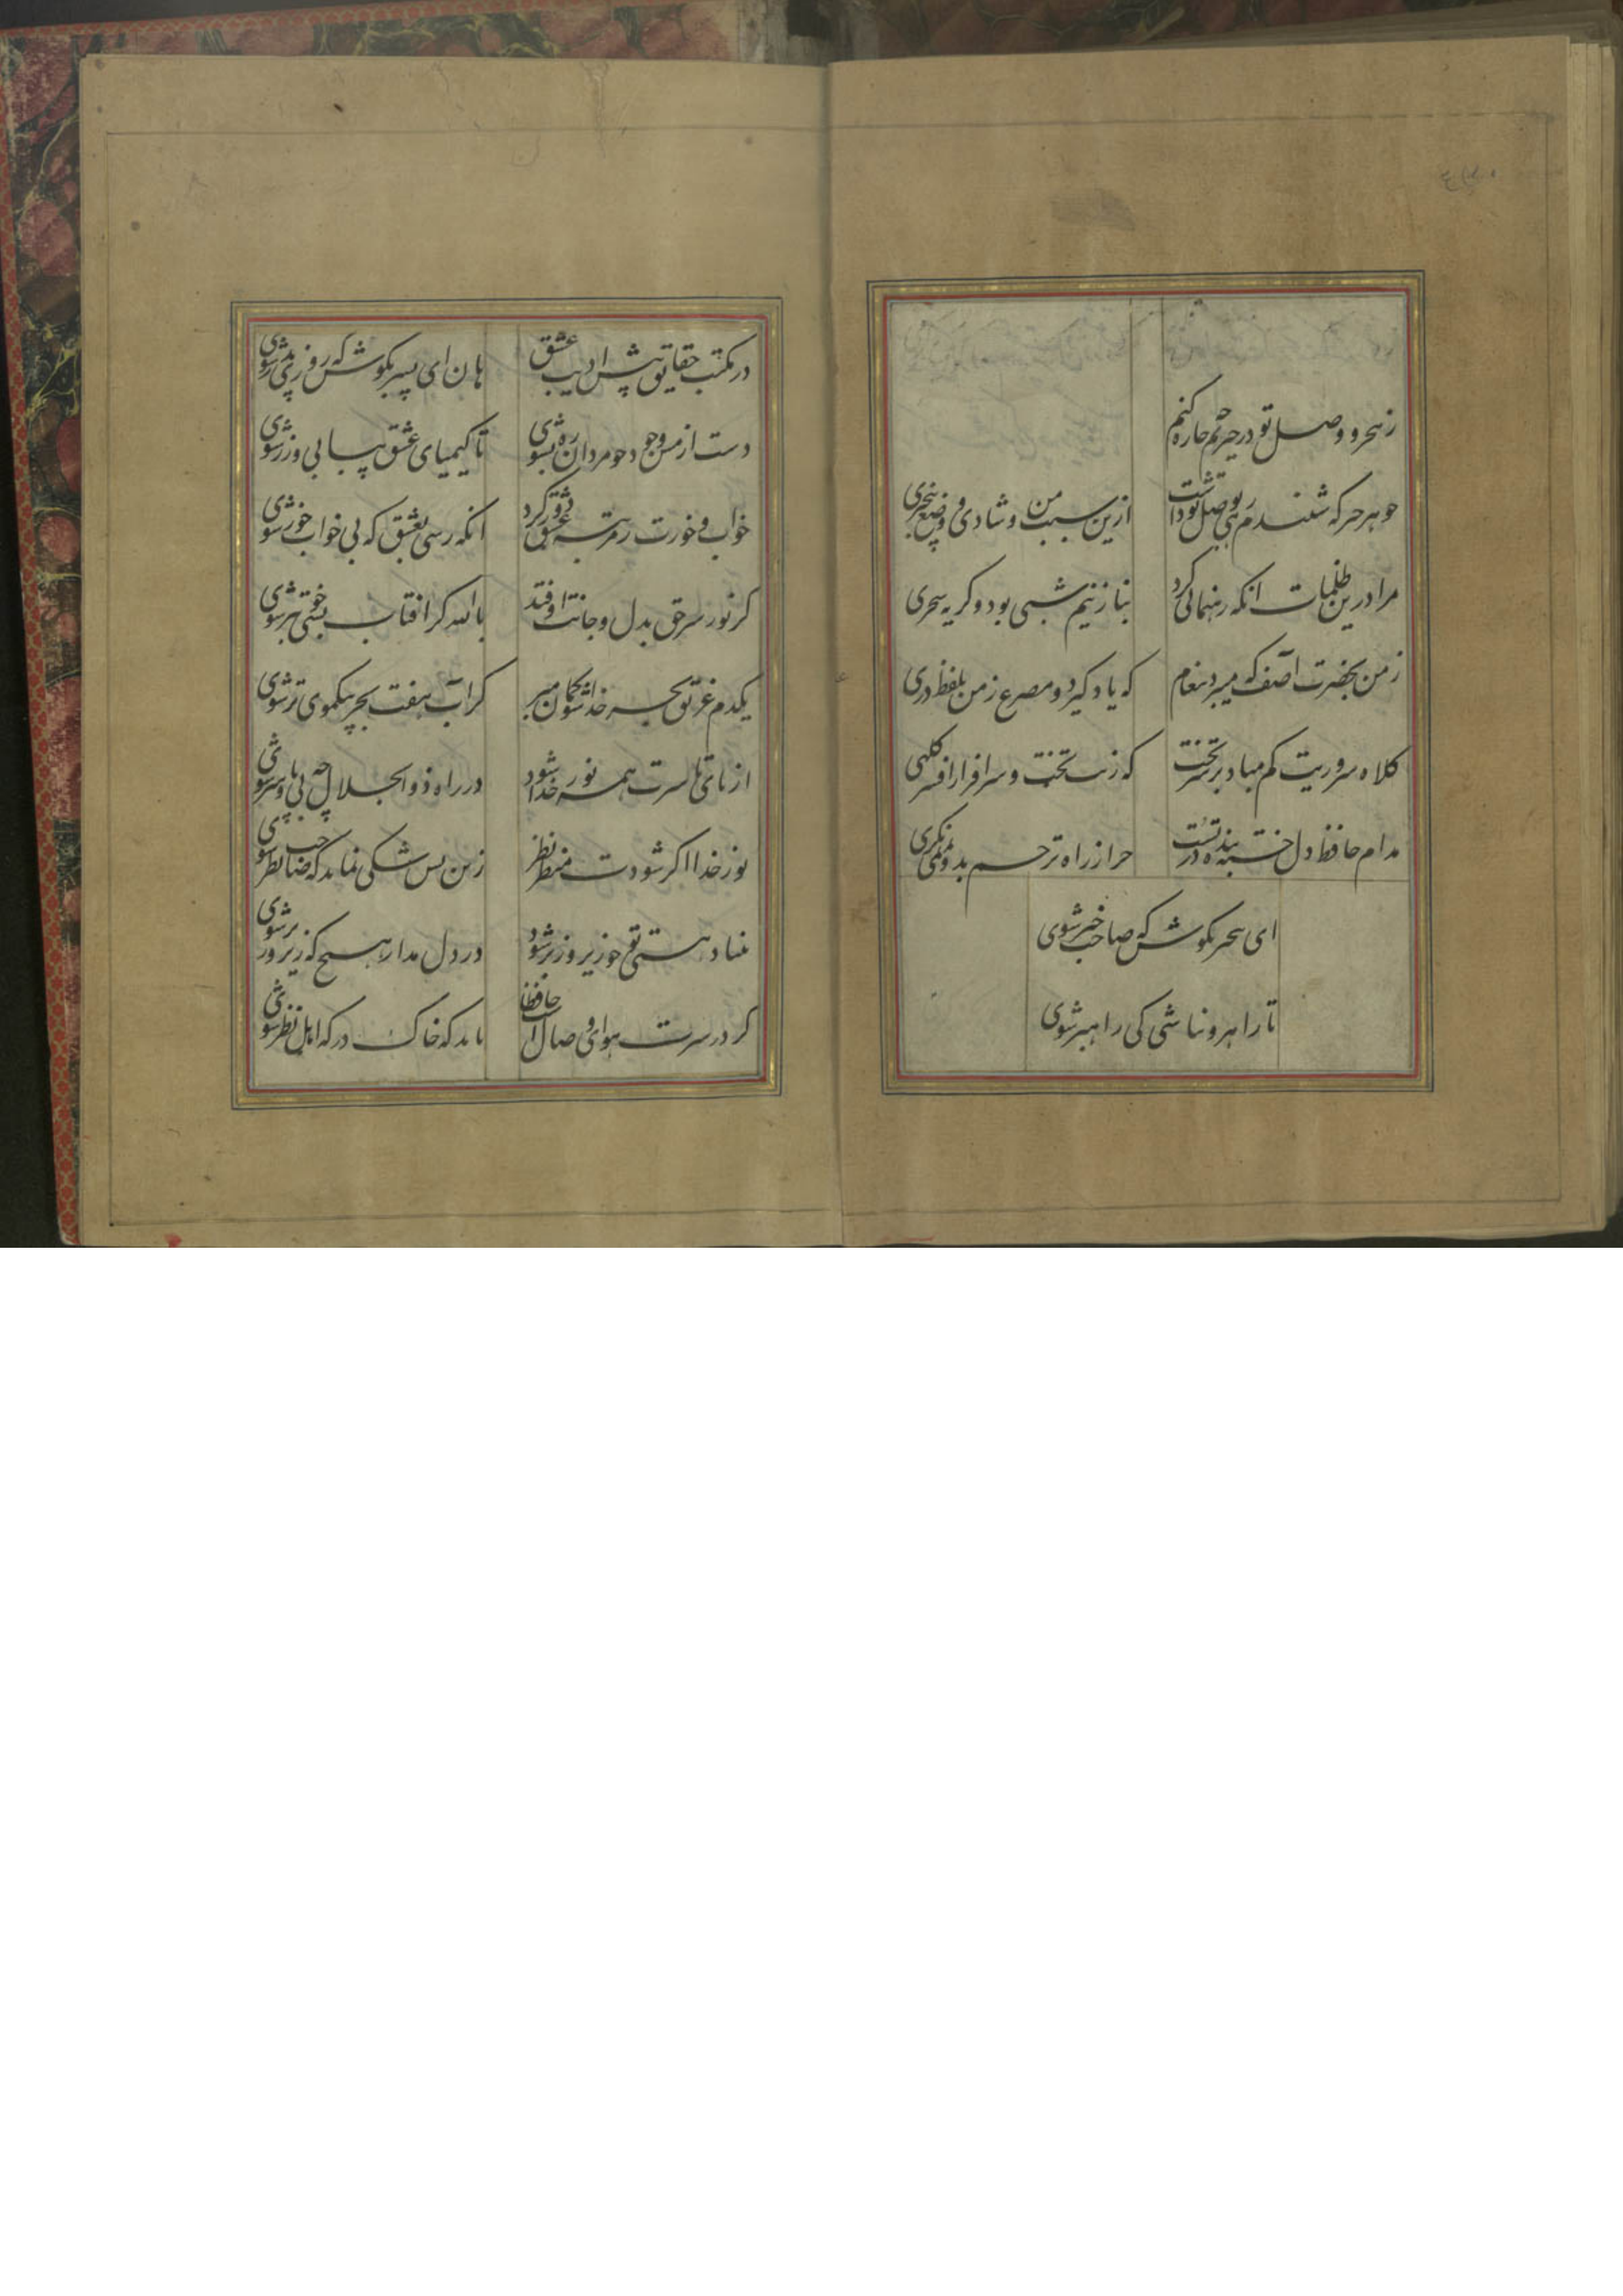 زهجر و وصل تو در حیرتم چه چاره کنم
جو هر خبر که شنیدم رهی بوصل تو داشت
ازین سبب من و شادی و وضع بیخبری
مرا درین ظلمات انکه رهنمائی کرد
نیاز نیم شبی بود و کریه سحری
زمن بحضرت آصف که میبرد پیغام
که یاد کیرد و مصرع زمن بلفظ دری
کلاه سروریت کم مباد بر سر تخت
که زیب تخت و سرافراز افسر کلهی
مدام حافظ دل خسته بنده در تست
چرا ز راه ترحم بدو نمی نکری
ای بیخبر بکوش که صاحب خبر شوی
تا راهرو نباشی کی راهبر شوی
در مکتب حقایق پیش ادیب عشق
هان ای پسر بکوش که روزی پدر شوی
دست از مس وجود چو مردان ره بشوی
تا کیمیای عشق بیابی و زر شوی
خواب و خورت ز مرتبه عشق دور کرد
انکه رسی بعشق که بی خواب و خور شوی
کر نور سر حق بدل و جانت اوفتد
بالله کز افتاب خوبتر شوی
یکدم غریق بحر خدا شو کمان مبر
کز آب هفت بحر بیکموی تر شوی
از پای تا سرت همه نور خدا شود
در راه ذوالجلال چه بی پا و سر شوی
نور خدا اکر شودت منظر نظر
زین پس شکی نماند که صاحب نظر شوی
بنیاد هستی تو چو زیر و زبر شود
در دل مدار هیچ که زیر و زبر شوی
کر در سرت هوای وصال است حافظا
باید که خاک درکه اهل نظر شوی